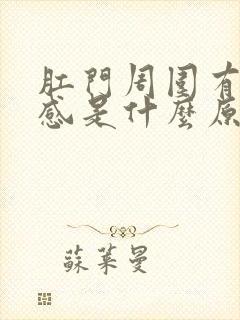 肛門周圍有
感是什麼原
蘇葉曼